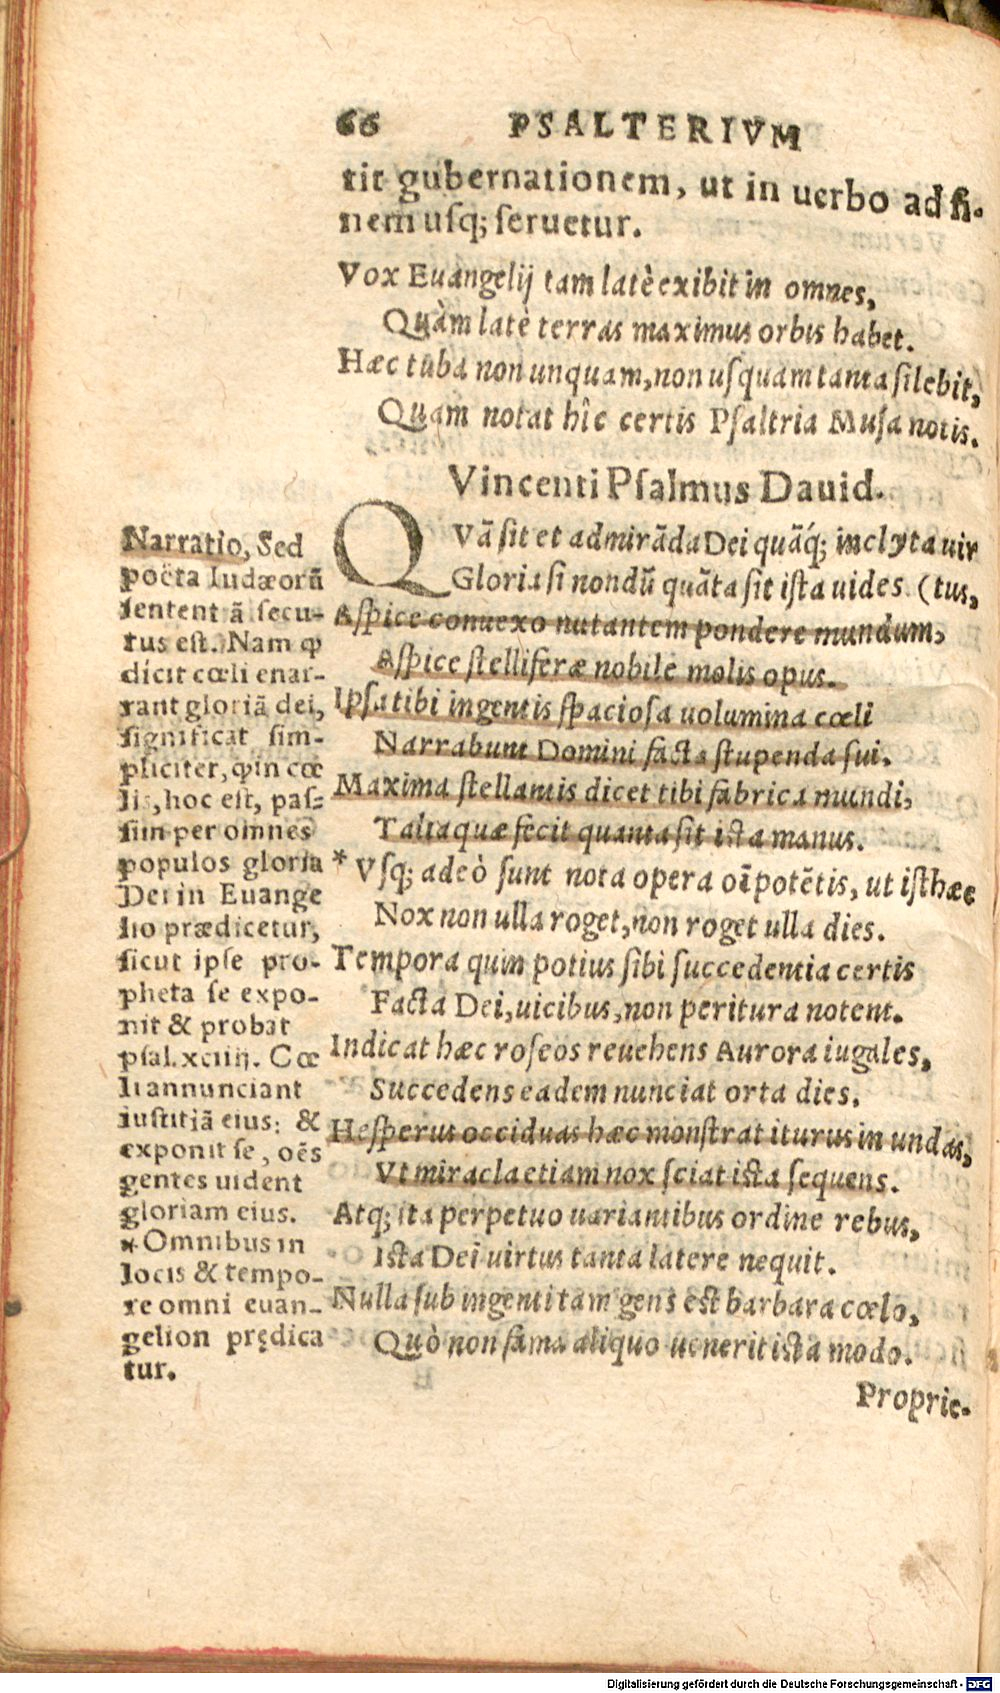 66 PSALTERIVM
tit gubernationem, ut in uerbo ad fi-
nem usq; seruetur.
Vox Euangelij tam latè exibit in omnes,
Quàm latè terras maximus orbis habet.
Hæc tuba non unquam, non usquam tanta silebit,
Quam notat hîc certis Psaltria Musa notis.
Vincenti Psalmus Dauid.
QVã sit et admirãda Dei quãq́; inclyta uir
Gloria si nondũ quãta sit ista uides (tus,
Aspice conuexo nutantem pondere mundum,
Aspice stelliferæ nobile molis opus.
Ipsa tibi ingentis spaciosa uolumina cœli
Narrabunt Domini facta stupenda sui.
Maxima stellantis dicet tibi fabrica mundi,
Talia quæ fecit quanta sit ista manus.
* Vsq; adeò sunt nota opera oĩpotẽtis, ut isthæc
Nox non ulla roget, non roget ulla dies.
Tempora quin potius sibi succedentia certis
Facta Dei, uicibus, non peritura notent.
Indicat hæc roseos reuehens Aurora iugales,
Succedens eadem nunciat orta dies.
Hesperus occiduas hæc monstrat iturus in undas,
Vt miracla etiam nox sciat ista sequens.
Atq; ita perpetuo uariantibus ordine rebus,
Ista Dei uirtus tanta latere nequit.
Nulla sub ingenti tam gens est barbara cœlo,
Quò non fama aliquo uenerit ista modo.
Proprie-
Narratio, Sed
poëta Iudæorũ
sententiã secu-
tus est. Nam ꝙ
dicit cœli enar-
rant gloriã dei,
significat sim-
pliciter, ꝙ in cœ
lis, hoc est, pas-
sim per omnes
populos gloria
Dei in Euange
lio prædicetur,
sicut ipse pro-
pheta se expo-
nit & probat
psal. xciiij. Cœ
li annunciant
iustitiã eius: &
exponit se, oẽs
gentes uident
gloriam eius.
* Omnibus in
locis & tempo-
re omni euan-
gelion prędica
tur.
Digitalisierung gefördert durch die Deutsche Forschungsgemeinschaft - DFG